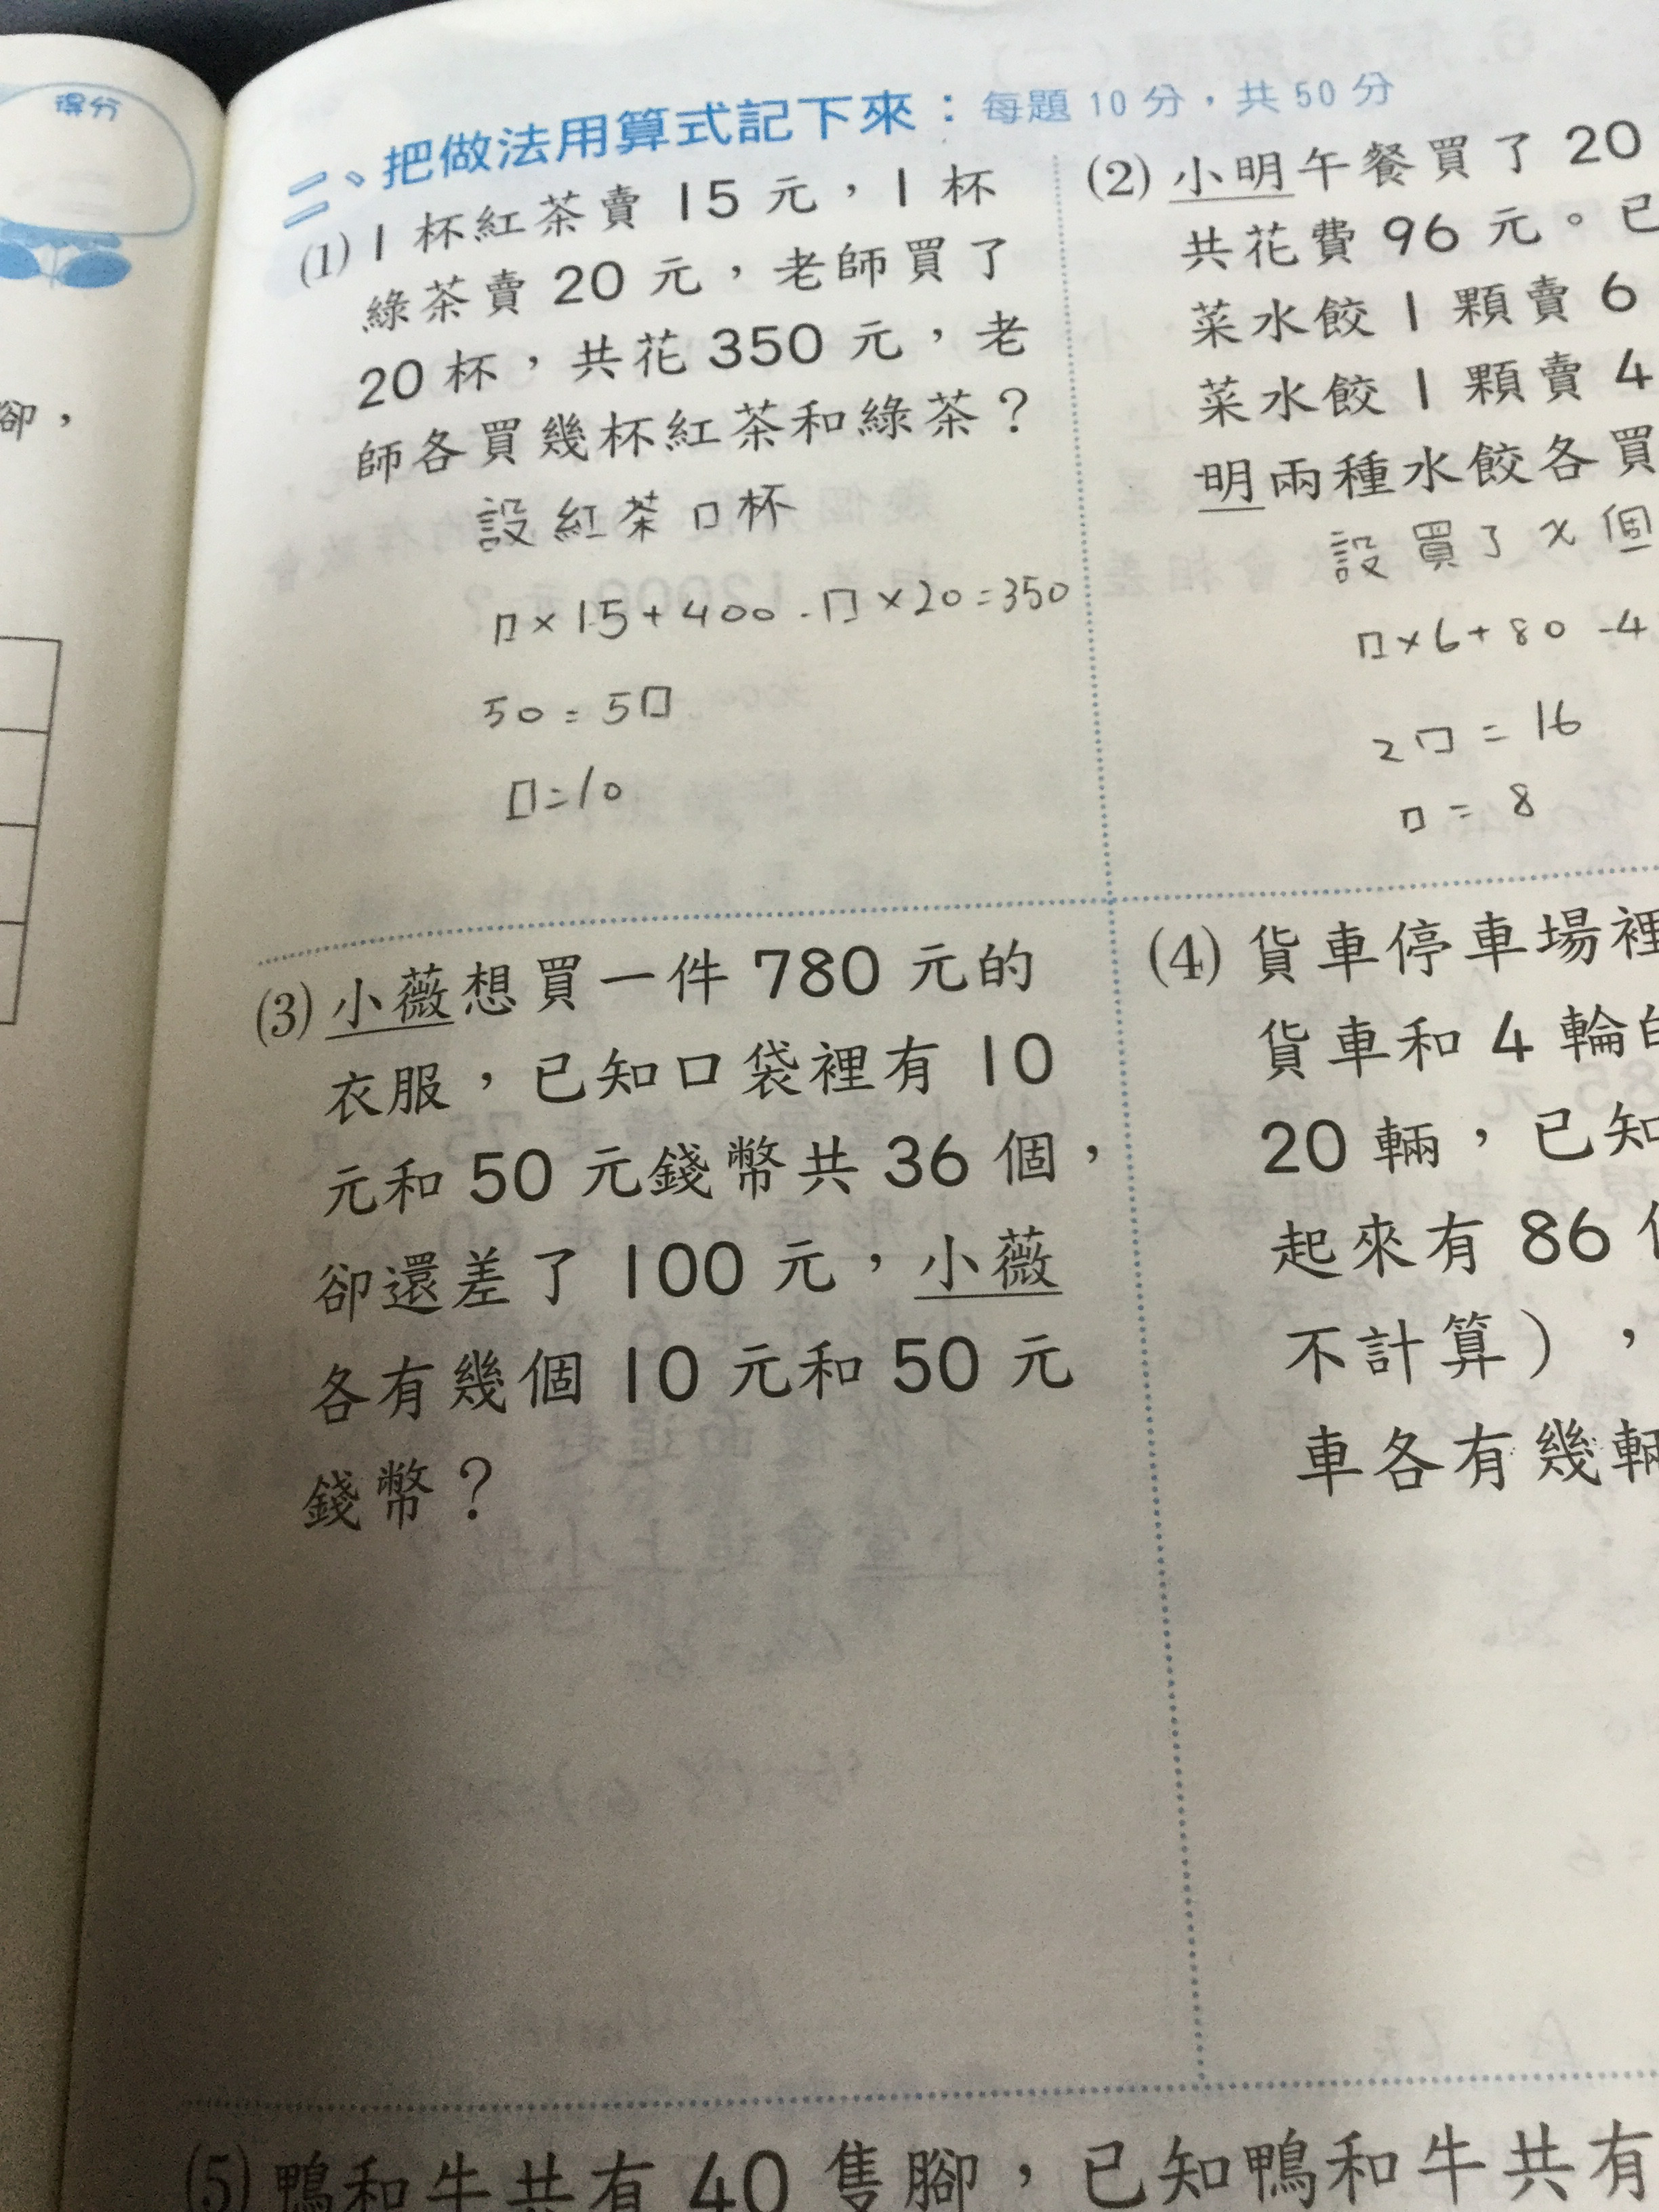 得分
卻，
二、把做法用算式記下來：每題 10 分，共 50 分
(1) 1 杯紅茶賣 15 元，1 杯
綠茶賣 20 元，老師買了
20 杯，共花 350 元，老
師各買幾杯紅茶和綠茶？
設紅茶□杯
□×15+400-□×20=350
50=5□
□=10
(2) 小明午餐買了 20
共花費 96 元。已
菜水餃 1 顆賣 6
菜水餃 1 顆賣 4
明兩種水餃各買
設買了x個
□×6+80-4
2□=16
□=8
(3) 小薇想買一件 780 元的
衣服，已知口袋裡有 10
元和 50 元錢幣共 36 個，
卻還差了 100 元，小薇
各有幾個 10 元和 50 元
錢幣？
(4) 貨車停車場裡
貨車和 4 輪的
20 輛，已知
起來有 86 個
不計算），
車各有幾輛
(5) 鴨和牛共有 40 隻腳，已知鴨和牛共有